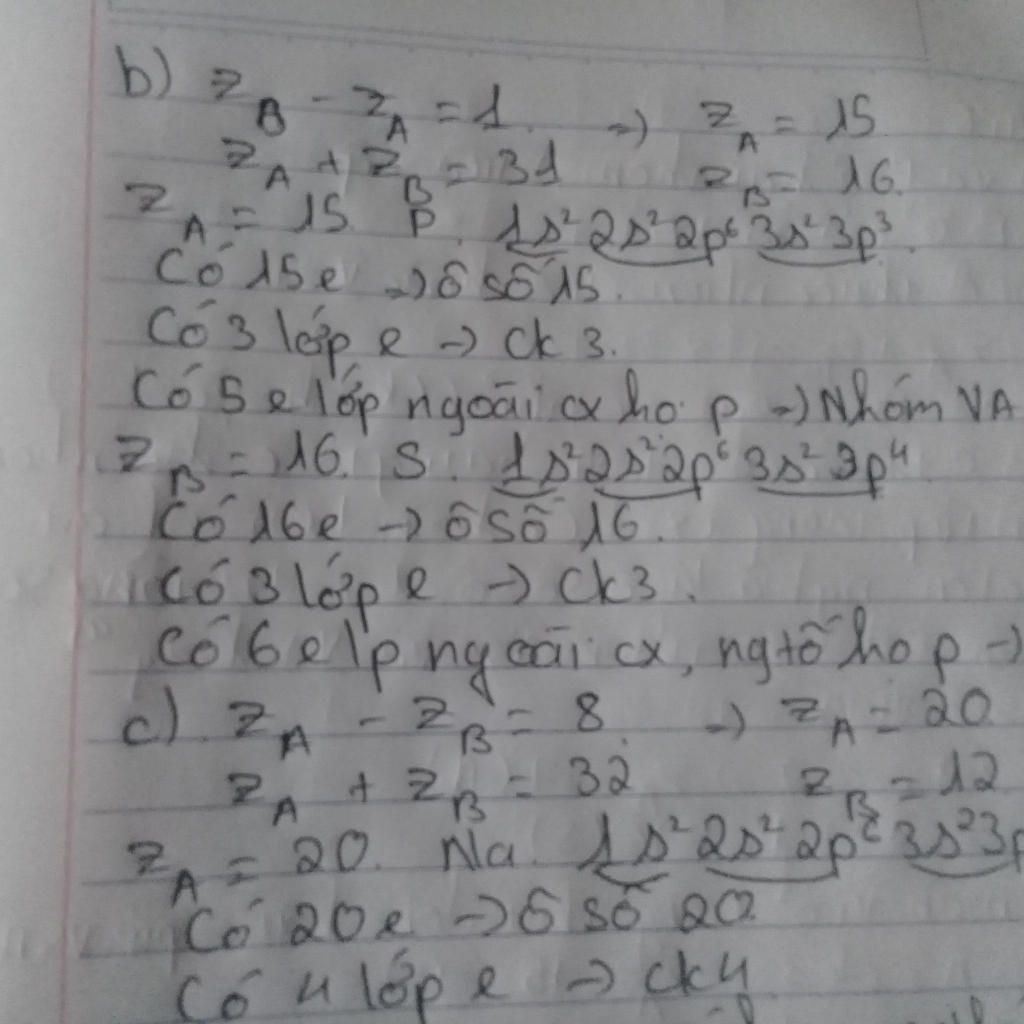 b) Z_B - Z_A = 1 => Z_A = 15
Z_A + Z_B = 31 Z_B = 16.
Z_A = 15. P. 1s² 2s² 2p⁶ 3s² 3p³.
Có 15e → ô số 15.
Có 3 lớp e → ck 3.
Có 5 e lớp ngoài cx họ p → Nhóm VA
Z_B = 16. S. 1s² 2s² 2p⁶ 3s² 3p⁴
Có 16e → ô số 16.
Có 3 lớp e → ck3.
Có 6 e lp ngoài cx, ngtố họ p →
c) Z_A - Z_B = 8 → Z_A = 20
Z_A + Z_B = 32 Z_B = 12
Z_A = 20. Na. 1s² 2s² 2p⁶ 3s² 3p
Có 20e → ô số 20
Có 4 lớp e → ck4